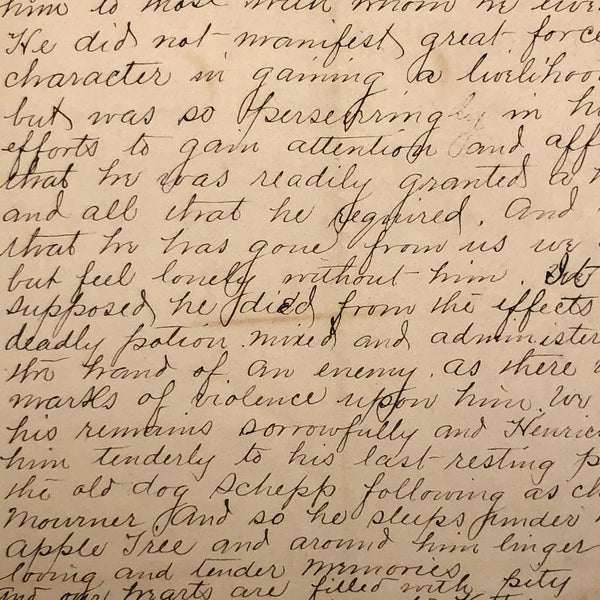 him to those with whom he live
He did not manifest great force
character in gaining a livelihoo
but was so perserringly in hi
efforts to gain attention and aff
that he was readily granted a h
and all that he required. And
that he has gone from us we
but feel lonely without him. It
supposed he died from the effects
deadly potion mixed and administer
the hand of an enemy. as there
marks of violence upon him. We
his remains sorrowfully and Henrie
him tenderly to his last resting p
the old dog Schepp following as ch
Mourner. And so he sleeps under
Apple Tree and around him linger
loving and tender memories
and our hearts are filled with pity